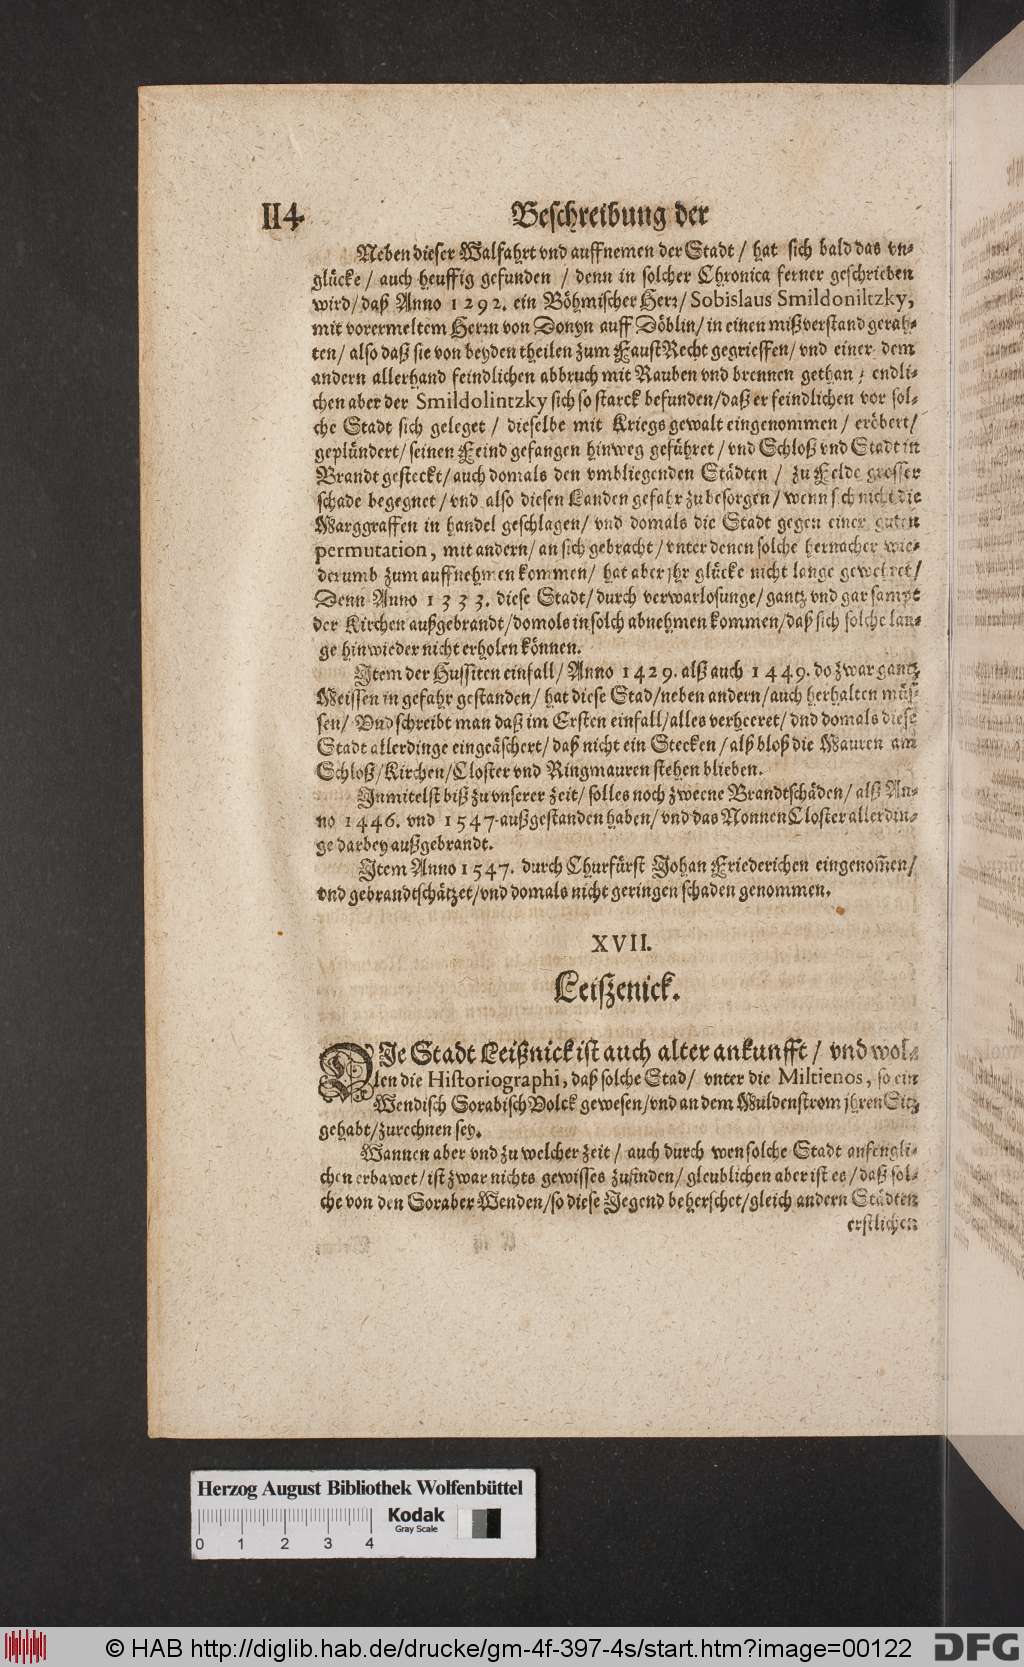 114
Beschreibung der
Neben dieser Walfahrt vnd auffnemen der Stadt / hat sich bald das vn-
glücke / auch heuffig gefunden / denn in solcher Chronica ferner geschrieben
wird / daß Anno 1292. ein Böhmischer Herr / Sobislaus Smildoniltzky,
mit vorermeltem Herrn von Donyn auff Döblin / in einen mißverstand gerah-
ten / also daß sie von beyden theilen zum FaustRecht gegrieffen / vnd einer dem
andern allerhand feindlichen abbruch mit Rauben vnd brennen gethan / endli-
chen aber der Smildolintzky sich so starck befunden / daß er feindlichen vor sol-
che Stadt sich geleget / dieselbe mit Kriegsgewalt eingenommen / eröbert /
geplündert / seinen Feind gefangen hinweg geführet / vnd Schloß vnd Stadt in
Brandt gesteckt / auch domals den vmbliegenden Städten / zu Felde grosser
schade begegnet / vnd also diesen Landen gefahr zubesorgen / wenn sich nicht die
Marggraffen in handel geschlagen / vnd domals die Stadt gegen einer guten
permutation, mit andern / an sich gebracht / vnter denen solche hernacher wie-
derumb zum auffnehmen kommen / hat aber jhr glücke nicht lange gewehret /
Denn Anno 1333. diese Stadt / durch verwarlosunge / gantz vnd gar sampt
der Kirchen außgebrandt / domols in solch abnehmen kommen / daß sich solche lan-
ge hinwieder nicht erholen können.
Item der Hussiten einfall / Anno 1429. alß auch 1449. do zwar gantz
Meissen in gefahr gestanden / hat diese Stad / neben andern / auch herhalten müs-
sen / Vnd schreibt man daß im Ersten einfall / alles verheeret / vnd domals diese
Stadt allerdinge eingeäschert / daß nicht ein Stecken / alß bloß die Mauren am
Schloß / Kirchen / Closter vnd Ringmauren stehen blieben.
Inmitelst biß zu vnserer zeit / solles noch zweene Brandtschäden / alß An-
no 1446. vnd 1547. außgestanden haben / vnd das NonnenCloster allerdin-
ge darbey außgebrandt.
Item Anno 1547. durch Churfürst Johan Friederichen eingenom̃en /
vnd gebrandtschätzet / vnd domals nicht geringen schaden genommen.
XVII.
Leißenick.
DIe Stadt Leißnick ist auch alter ankunfft / vnd wol-
len die Historiographi, daß solche Stad / vnter die Miltienos, so ein
Wendisch Sorabisch Volck gewesen / vnd an dem Muldenstrom jhren Sitz
gehabt / zurechnen sey.
Wannen aber vnd zu welcher zeit / auch durch wen solche Stadt anfengli-
chen erbawet / ist zwar nichts gewisses zufinden / gleublichen aber ist es / daß sol-
che von den Soraber Wenden / so diese Jegend beherschet / gleich andern Städten
erstlichen
Herzog August Bibliothek Wolfenbüttel
Kodak
Gray Scale
0 1 2 3 4
© HAB http://diglib.hab.de/drucke/gm-4f-397-4s/start.htm?image=00122
DFG